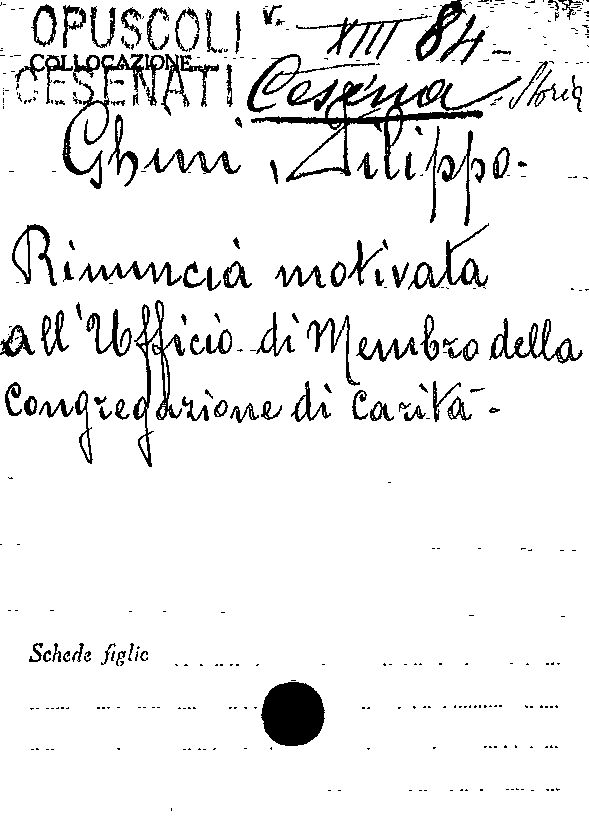 OPUSCOLI v. XIII 84-
COLLOCAZIONE
CESENATI Cesena - Storia
Ghini, Filippo.
Rinuncia motivata
all'Ufficio di Membro della
Congregazione di Carità -
Schede figlie